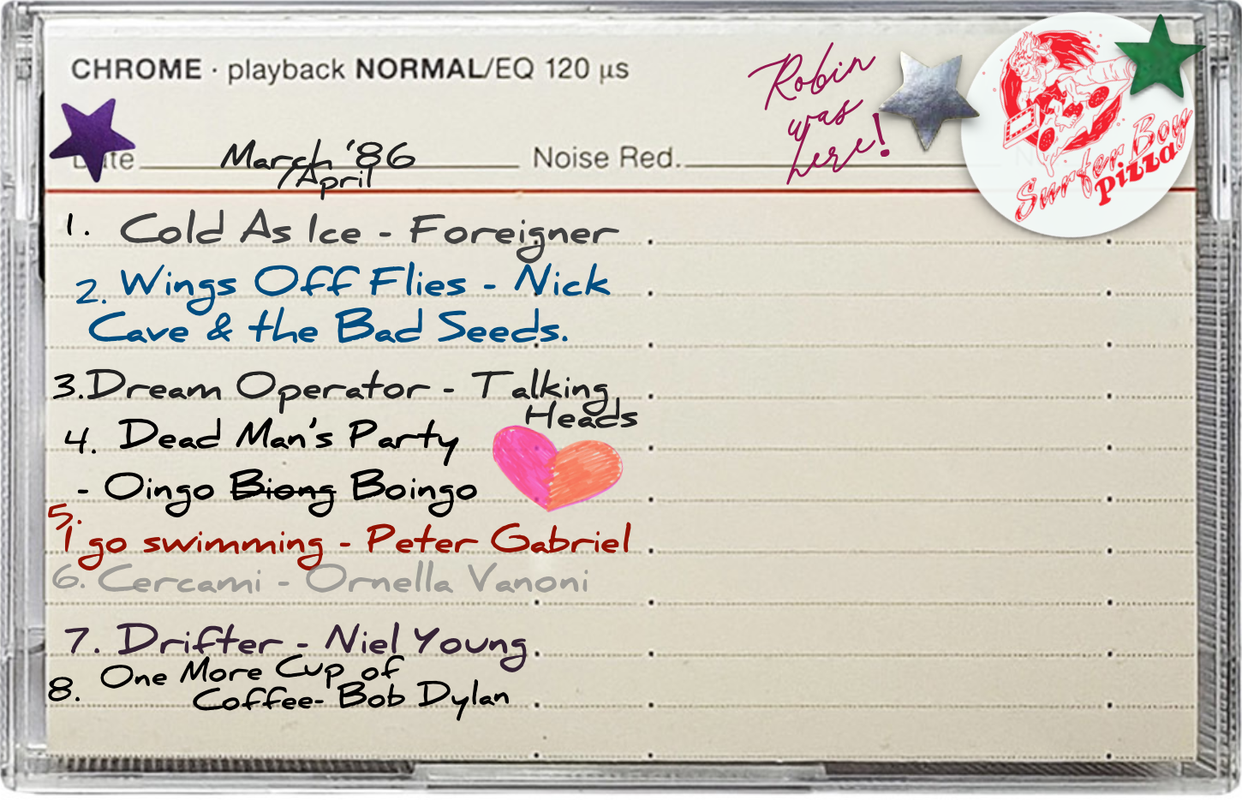 CHROME · playback NORMAL/EQ 120 µs
Robin
was
here!
Surfer Boy
Pizza
Date March '86
/April
Noise Red.
N
1. Cold As Ice - Foreigner
2. Wings Off Flies - Nick
Cave & the Bad Seeds.
3. Dream Operator - Talking
Heads
4. Dead Man's Party
- Oingo Biong Boingo
5.
I go swimming - Peter Gabriel
6. Cercami - Ornella Vanoni
7. Drifter - Niel Young
8. One More Cup of
Coffee- Bob Dylan